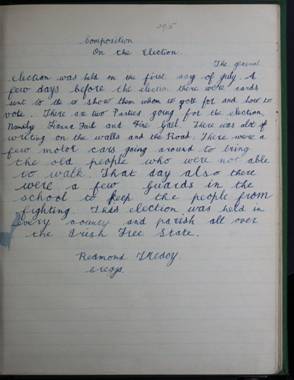 295
Composition
On the Election.
The general
election was held on the first day of July. A
few days before the election there were cards
sent to the to show them whom to vote for and how to
vote. There are two Parties going for the election,
Namely Fianna Fail and Fine Gael. There was alot of
writing on the walls and the Road. There were a
few motor cars going around to bring
the old people who were not able
to walk. That day also there
were a few Guards in the
school to keep the people from
fighting. This election was held in
Every county and parish all over
the Irish Free State.
Redmond